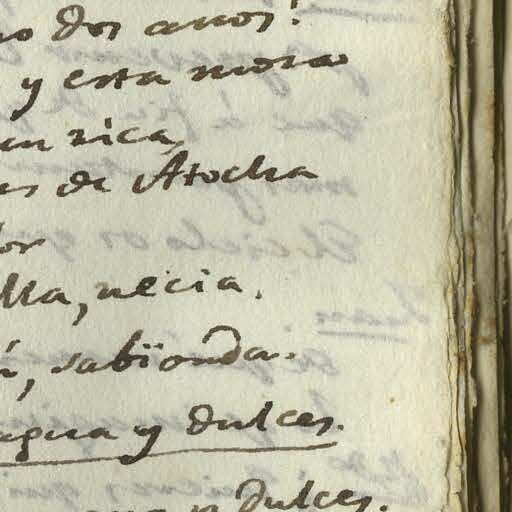 dos años?
y esta mora
rica,
de Atocha
lla, necia.
sabionda.
agua y dulces.
dulces.